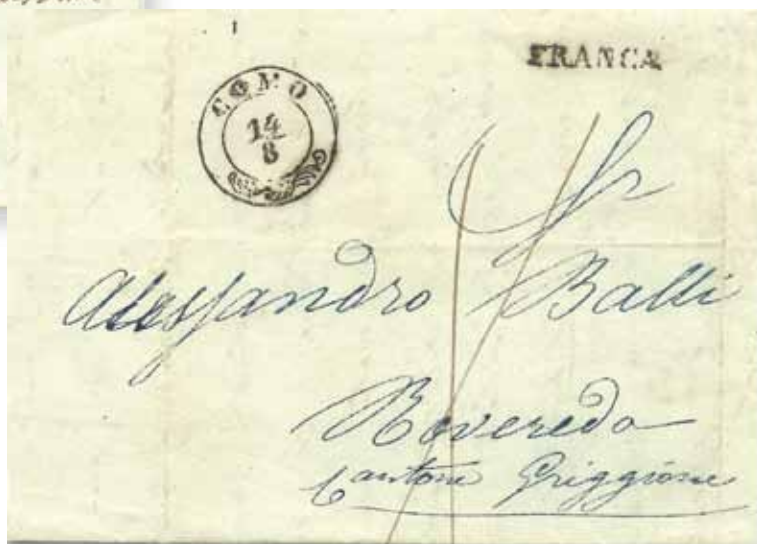 FRANCA
COMO
14
8
Sr
Alessandro Balli
Roveredo
Cantone Griggione